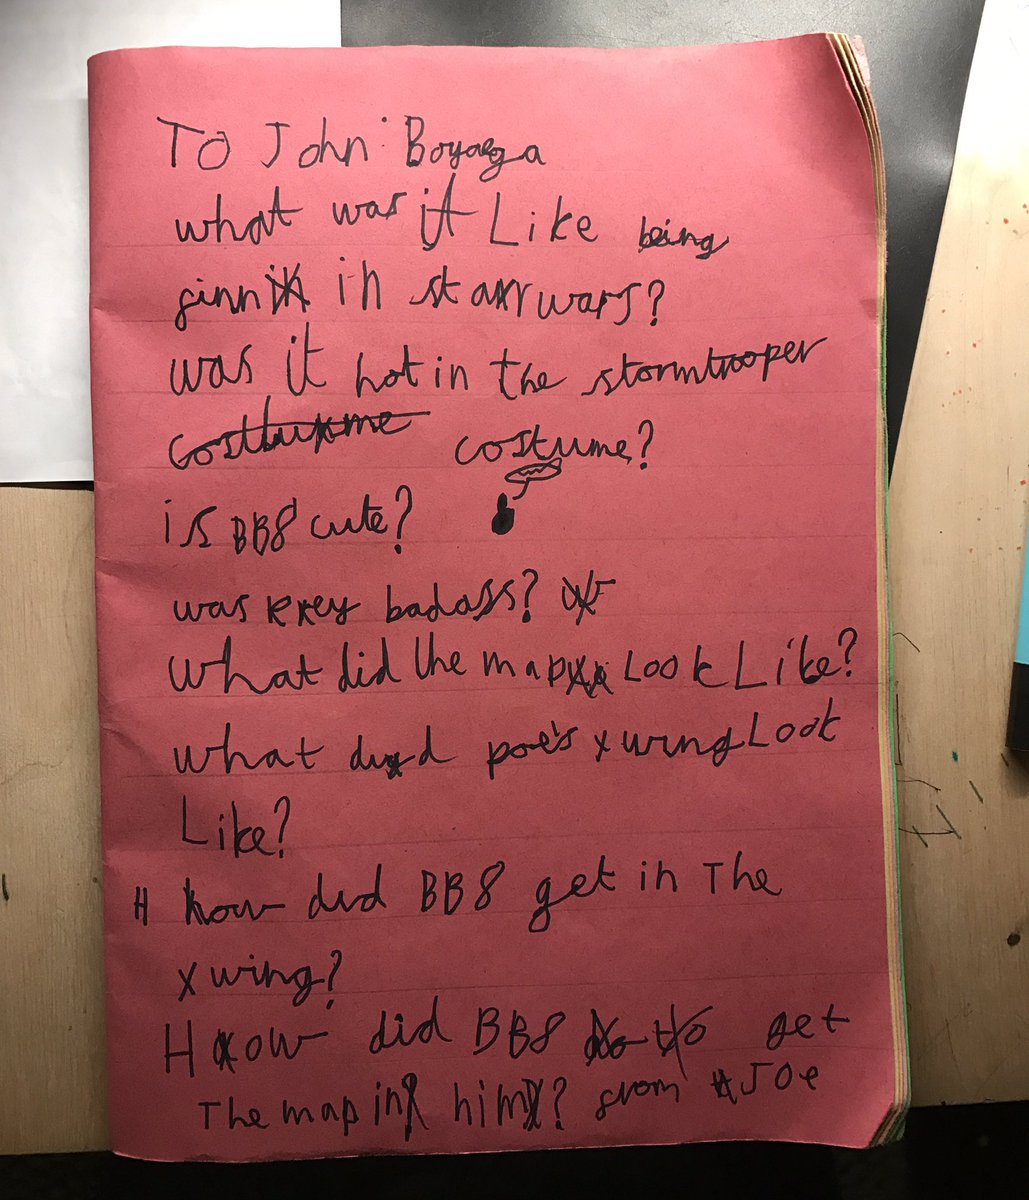 To John Boyaega
what was it Like being
finn in star wars?
was it hot in the stormtrooper
costume?
is BB8 cute?
was rey badass?
What did the map Look Like?
what did poe's x wing Look
Like?
H how did BB8 get in The
x wing?
How did BB8 get
The map in him? from Joe